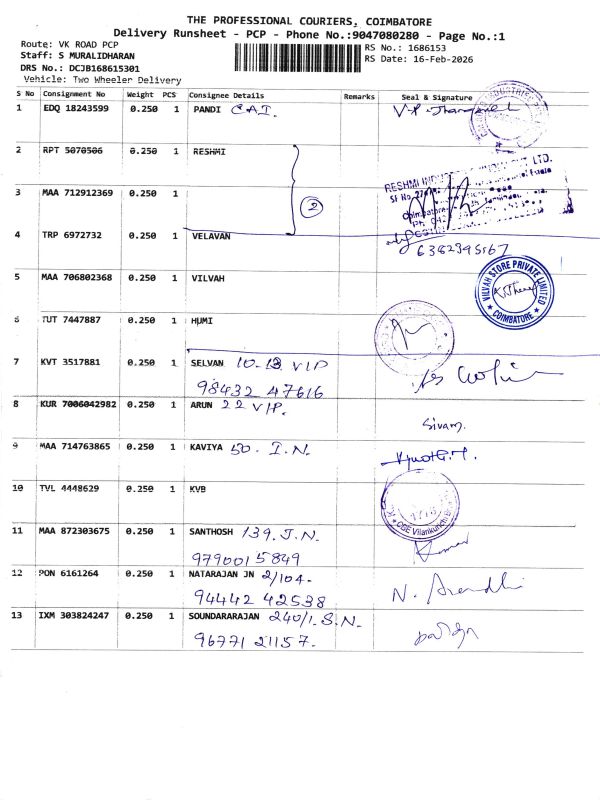 THE PROFESSIONAL COURIERS, COIMBATORE
Delivery Runsheet - PCP - Phone No.:9047080280 - Page No.:1
Route: VK ROAD PCP
Staff: S MURALIDHARAN
DRS No.: DCJB168615301
Vehicle: Two Wheeler Delivery
RS No.: 1686153
RS Date: 16-Feb-2026
S No Consignment No Weight PCS Consignee Details Remarks Seal & Signature
1 EDQ 18243599 0.250 1 PANDI C.A.I.
2 RPT 5070506 0.250 1 RESHMI
RESHMI
3 MAA 712912369 0.250 1
2
4 TRP 6972732 0.250 1 VELAVAN
6382395167
5 MAA 706802368 0.250 1 VILVAH
VILVAH STORE PRIVATE LIMITED
COIMBATORE
6 TUT 7447887 0.250 1 HUMI
7 KVT 3517881 0.250 1 SELVAN 10-13 VIP
98432 47616
8 KUR 7006042982 0.250 1 ARUN 22 VIP.
Sivam.
9 MAA 714763865 0.250 1 KAVIYA 50. I.N.
10 TVL 4448629 0.250 1 KVB
11 MAA 872303675 0.250 1 SANTHOSH 139. J.N.
9790015849
12 PON 6161264 0.250 1 NATARAJAN JN 2/104-
94442 42538
13 IXM 303824247 0.250 1 SOUNDARARAJAN 240/1. S.N.
96771 21157.